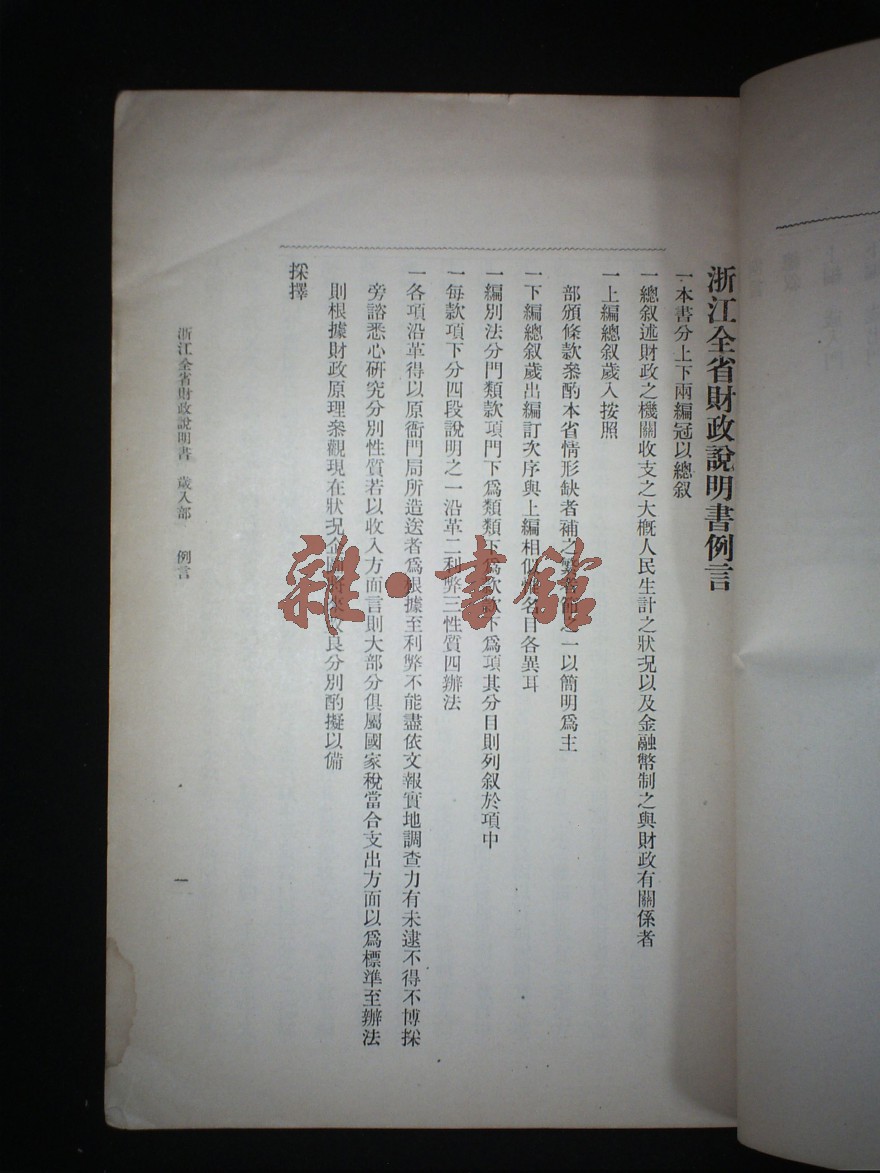 浙江全省財政說明書例言
一本書分上下兩編冠以總叙
一總叙述財政之機關收支之大槪人民生計之狀况以及金融幣制之與財政有關係者
一上編總叙歲入按照
部頒條款叅酌本省情形缺者補之繁者節之一以簡明爲主
一下編總叙歲出編訂次序與上編相似惟名目各異耳
一編別法分門類款項門下爲類類下爲款款下爲項其分目則列叙於項中
一每款項下分四段說明之一沿革二利弊三性質四辦法
一各項沿革得以原衙門局所造送者爲根據至利弊不能盡依文報實地調查力有未逮不得不博採
旁諮悉心研究分別性質若以收入方面言則大部分俱屬國家稅當合支出方面以爲標準至辦法
則根據財政原理叅觀現在狀况企圖將來改良分別酌擬以備
採擇
浙江全省財政說明書 歲入部 例言
一
雜·書館